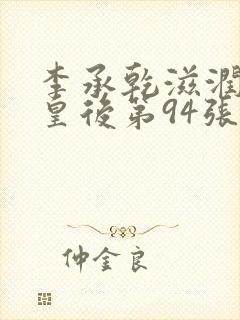 李承乾滋潤
皇後第94張
仲金良